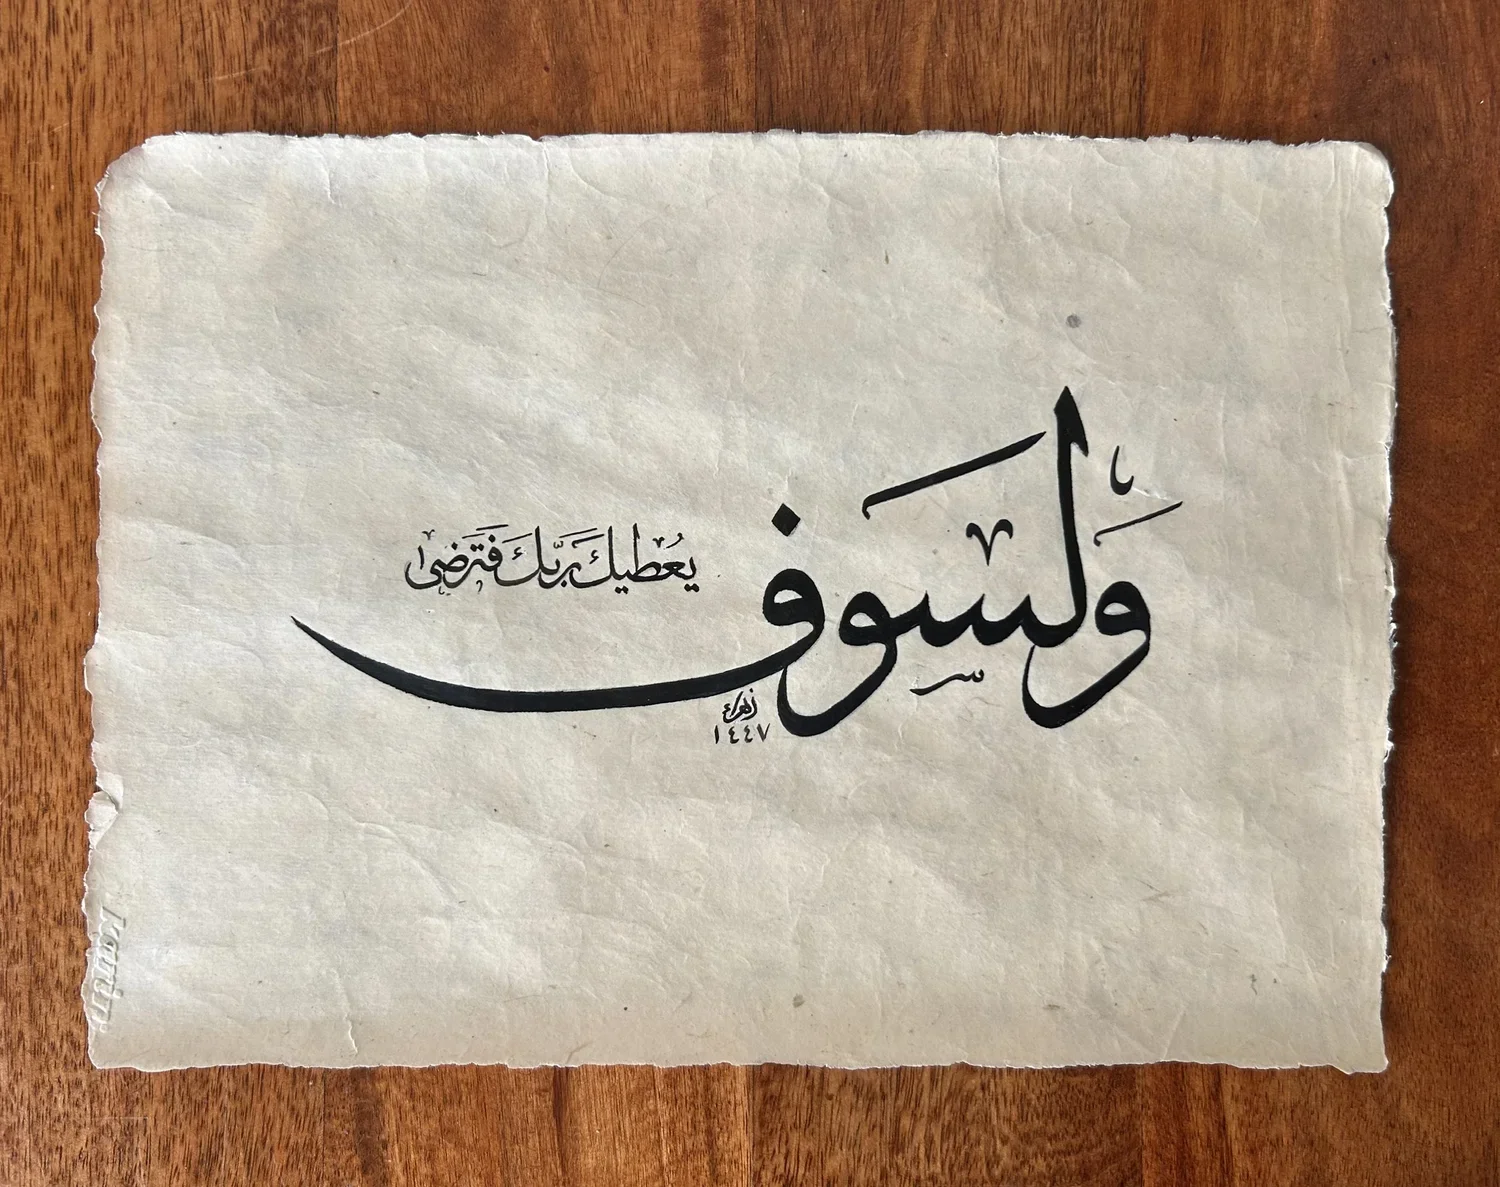 وَلسوف
يُعطيكَ رَبّكَ فَترضى
زهراء
١٤٤٧